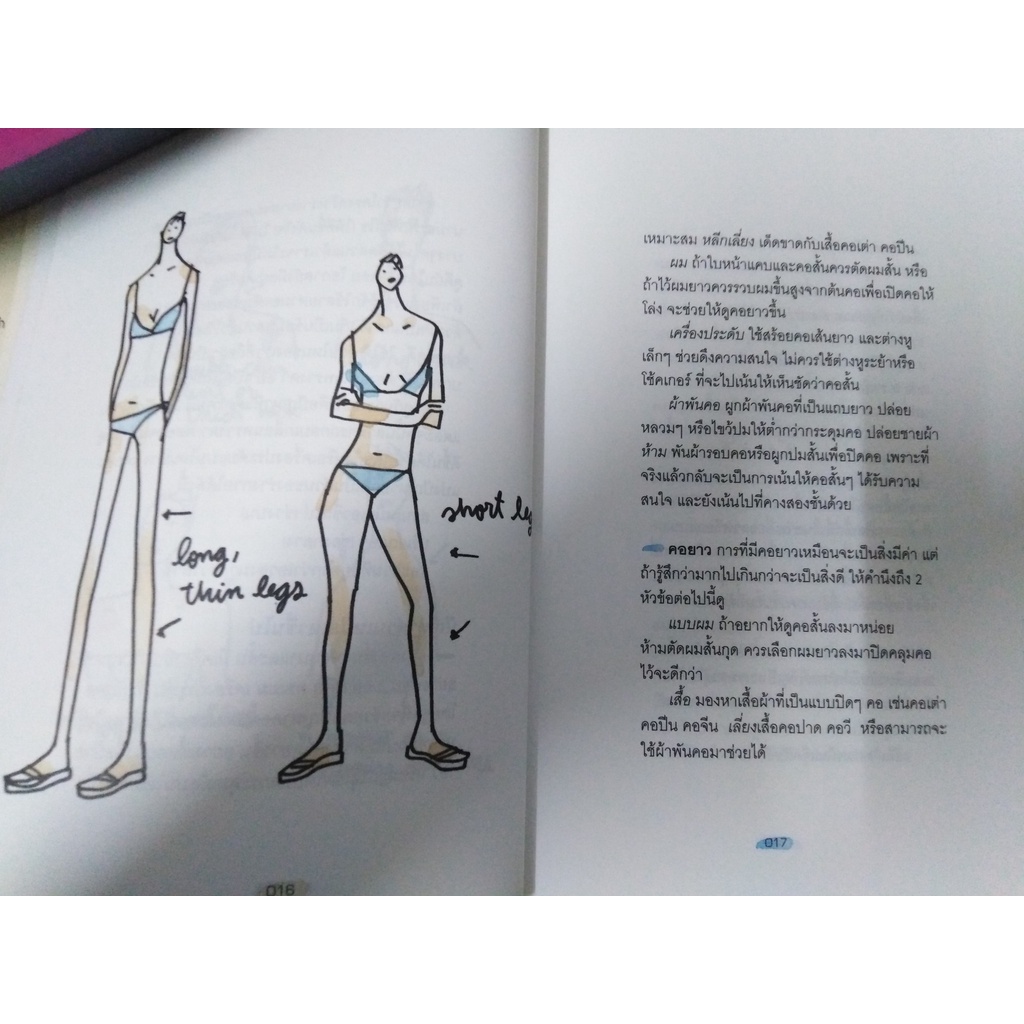 long,
thin legs
short leg
016
เหมาะสม หลีกเลี่ยง เด็ดขาดกับเสื้อคอเต่า คอปีน
ผม ถ้าใบหน้าแคบและคอสั้นควรตัดผมสั้น หรือ
ถ้าไว้ผมยาวควรรวบผมขึ้นสูงจากต้นคอเพื่อเปิดคอให้
โล่ง จะช่วยให้ดูคอยาวขึ้น
เครื่องประดับ ใช้สร้อยคอเส้นยาว และต่างหู
เล็กๆ ช่วยดึงความสนใจ ไม่ควรใช้ต่างหูระย้าหรือ
โช้คเกอร์ ที่จะไปเน้นให้เห็นชัดว่าคอสั้น
ผ้าพันคอ ผูกผ้าพันคอที่เป็นแถบยาว ปล่อย
หลวมๆ หรือไขว้ปมให้ต่ำกว่ากระดุมคอ ปล่อยชายผ้า
ห้าม พันผ้ารอบคอหรือผูกปมสั้นเพื่อปิดคอ เพราะที่
จริงแล้วกลับจะเป็นการเน้นให้คอสั้นๆ ได้รับความ
สนใจ และยังเน้นไปที่คางสองชั้นด้วย
คอยาว การที่มีคอยาวเหมือนจะเป็นสิ่งมีค่า แต่
ถ้ารู้สึกว่ามากไปเกินกว่าจะเป็นสิ่งดี ให้คำนึงถึง 2
หัวข้อต่อไปนี้ดู
แบบผม ถ้าอยากให้ดูคอสั้นลงมาหน่อย
ห้ามตัดผมสั้นกุด ควรเลือกผมยาวลงมาปิดคลุมคอ
ไว้จะดีกว่า
เสื้อ มองหาเสื้อผ้าที่เป็นแบบปิดๆ คอ เช่นคอเต่า
คอปีน คอจีน เลี่ยงเสื้อคอปาด คอวี หรือสามารถจะ
ใช้ผ้าพันคอมาช่วยได้
017